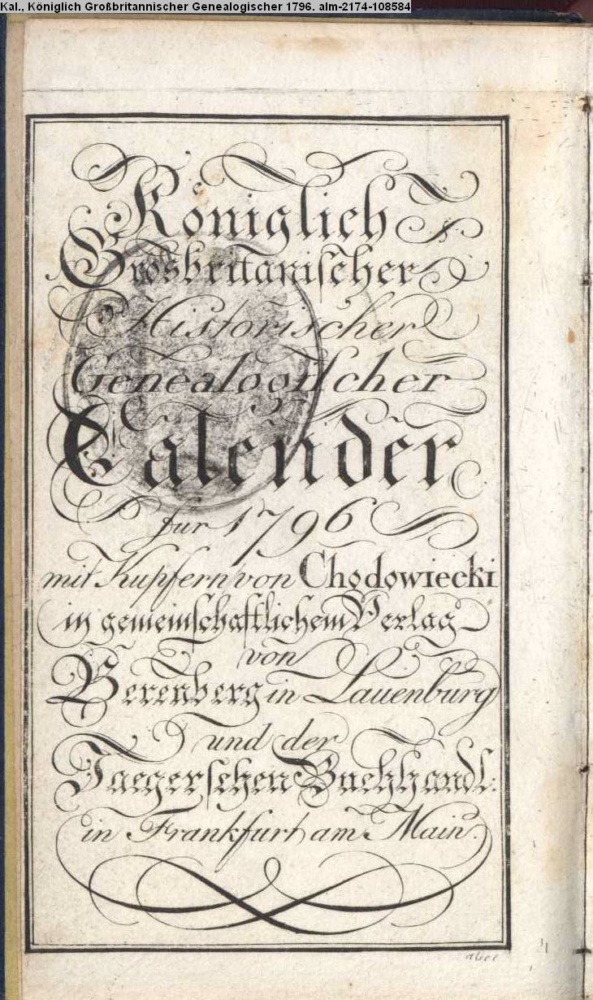 Kal., Königlich Großbritannischer Genealogischer 1796. alm-2174-108584
Königlich
Grosbritanischer
Historischer
Genealogischer
Calender
für 1796
mit Kupfern von Chodowiecki
in gemeinschaftlichem Verlag
von
Berenberg in Lauenburg
und der
Jaegerschen Buchhandl:
in Frankfurt am Main.